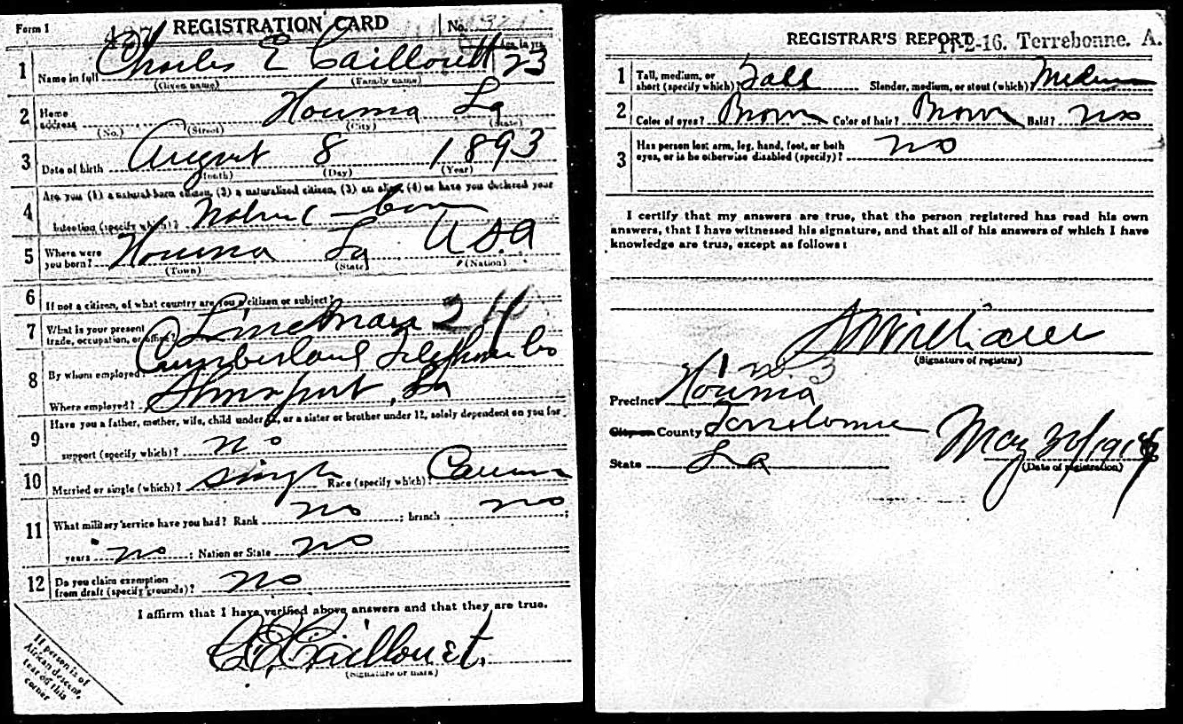 Form 1 REGISTRATION CARD No.
1 Name in full Charles E Caillouett 23
(Given name) (Family name) Age, in yrs.
2 Home address Houma La
(No.) (Street) (City) (State)
3 Date of birth August 8 1893
(Month) (Day) (Year)
4 Are you (1) a natural-born citizen, (2) a naturalized citizen, (3) an alien, (4) or have you declared your
intention (specify which)?
5 Where were you born? Houma La USA
(Town) (State) (Nation)
6 If not a citizen, of what country are you a citizen or subject?
7 What is your present trade, occupation, or office? Lineman 24
8 By whom employed? Cumberland Telephone Co
Where employed? Shreveport, La
9 Have you a father, mother, wife, child under 12, or a sister or brother under 12, solely dependent on you for
support (specify which)? no
10 Married or single (which)? Single Race (specify which)?
11 What military service have you had? Rank no ; branch no ;
years no ; Nation or State no
12 Do you claim exemption from draft (specify grounds)? no
I affirm that I have verified above answers and that they are true.
C E Caillouet.
(Signature or mark)
If person is of
African descent,
tear off this
corner
REGISTRAR'S REPORT 17-2-16. Terrebonne. A.
1 Tall, medium, or short (specify which)? Tall Slender, medium, or stout (which)? Medium
2 Color of eyes? Brown Color of hair? Brown Bald? no
3 Has person lost arm, leg, hand, foot, or both
eyes, or is he otherwise disabled (specify)? no
I certify that my answers are true, that the person registered has read his own
answers, that I have witnessed his signature, and that all of his answers of which I have
knowledge are true, except as follows:
(Signature of registrar)
Precinct Houma no 3
City or County Terrebonne
State La
May 30/1917
(Date of registration)